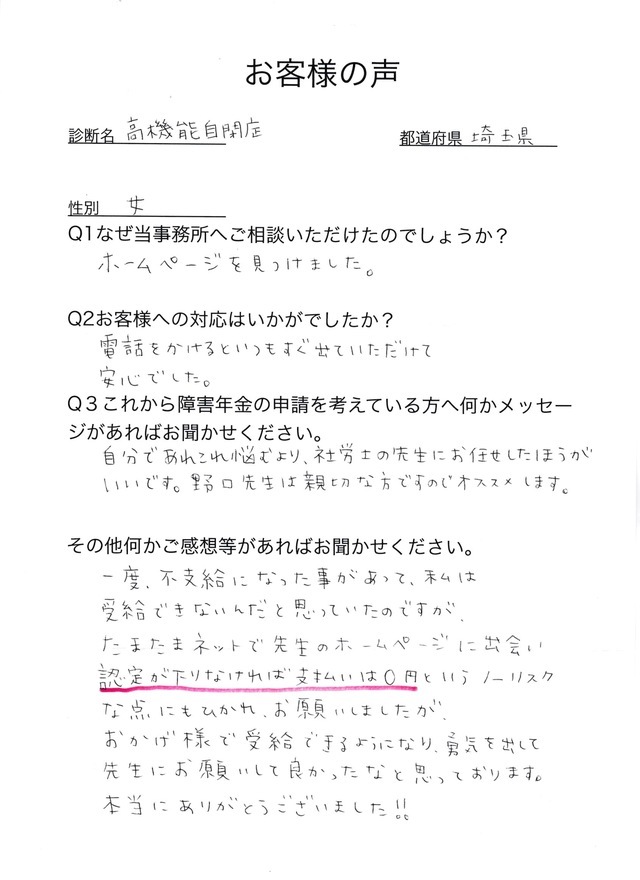 お客様の声
診断名 高機能自閉症 都道府県 埼玉県
性別 女
Q1なぜ当事務所へご相談いただけたのでしょうか？
ホームページを見つけました。
Q2お客様への対応はいかがでしたか？
電話をかけるといつもすぐ出ていただけて
安心でした。
Q３これから障害年金の申請を考えている方へ何かメッセー
ジがあればお聞かせください。
自分であれこれ悩むより、社労士の先生にお任せしたほうが
いいです。野口先生は親切な方ですのでオススメします。
その他何かご感想等があればお聞かせください。
一度、不支給になった事があって、私は
受給できないんだと思っていたのですが、
たまたまネットで先生のホームページに出会い
認定が下りなければ支払いは0円というノーリスク
な点にもひかれ、お願いしましたが、
おかげ様で受給できるようになり、勇気を出して
先生にお願いして良かったなと思っております。
本当にありがとうございました!!